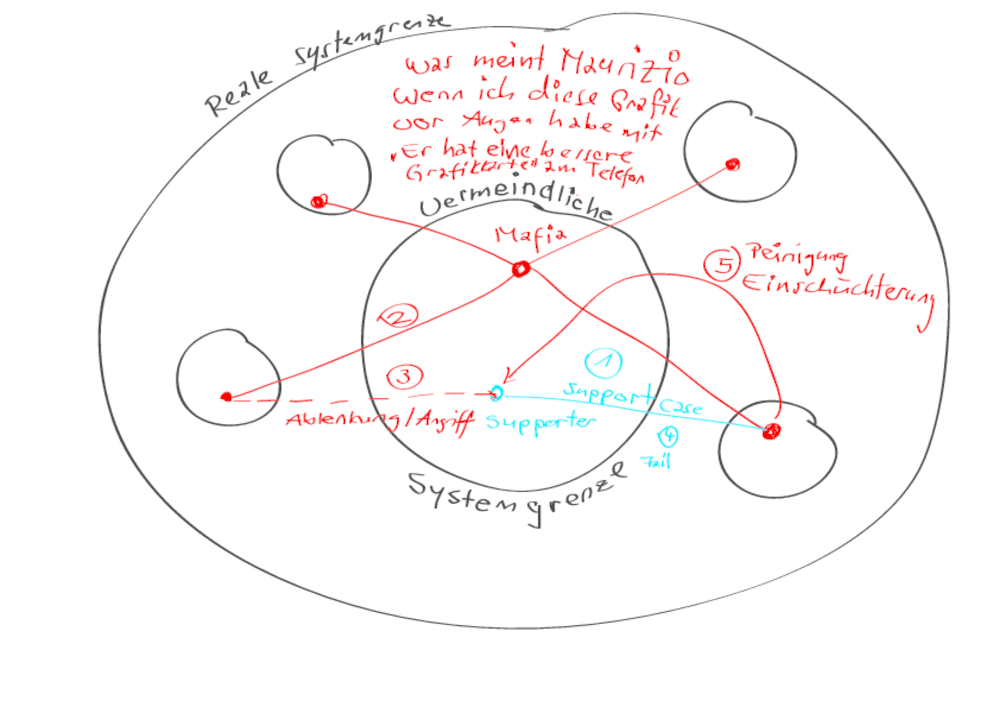 Reale Systemgrenze
was meint Maurizio
wenn ich diese Grafik
vor Augen habe mit
"Er hat eine bessere
Grafikkarte" am Telefon
Vermeindliche
Mafia
5 Peinigung
Einschüchterung
2
1
3
Support Case
Ablenkung/Angriff Supporter
4
Fail
Systemgrenze